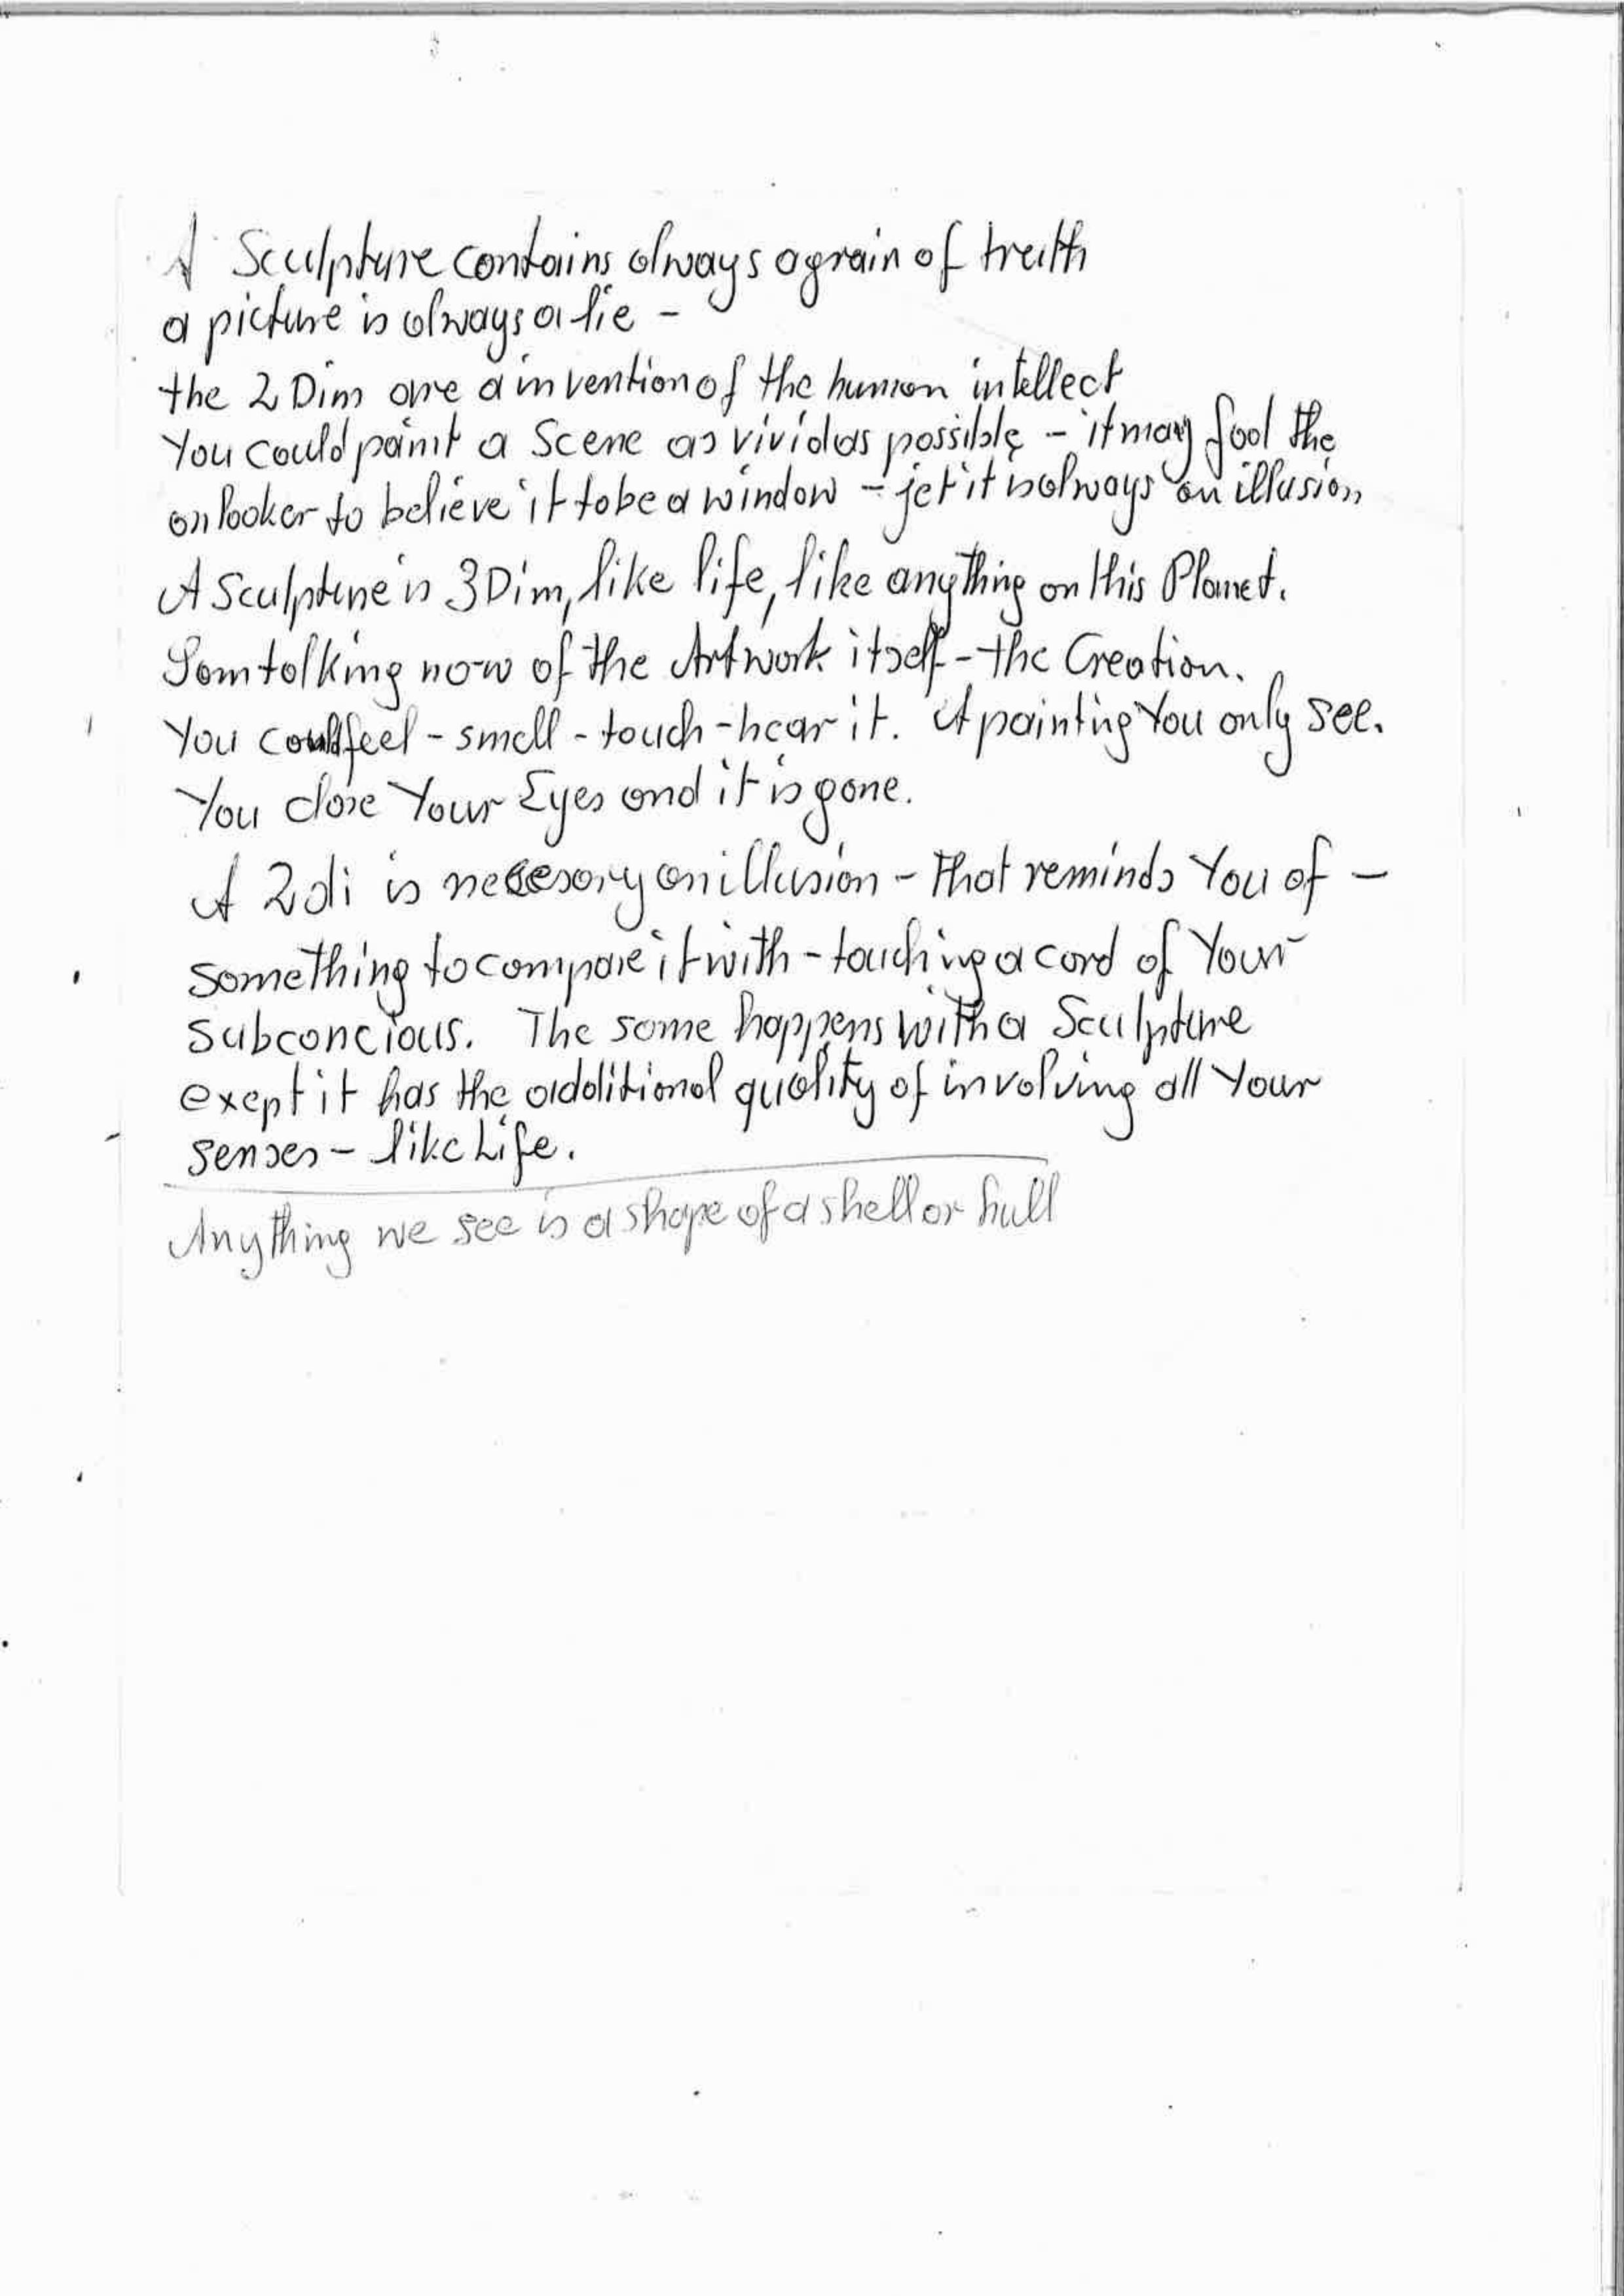 A Sculpture contains always a grain of truth
a picture is always a lie -
the 2 Dim are a invention of the human intellect
You could paint a Scene as vivid as possible - it may fool the
onlooker to believe it to be a window - jet it is always an illusion
A Sculpture is 3 Dim, like life, like anything on this Planet.
I am talking now of the Artwork itself - the Creation.
You could feel - smell - touch - hear it. A painting You only see.
You close Your Eyes and it is gone.
A 2 di is necesary an illusion - that reminds You of -
something to compare it with - touching a cord of Your
subconcious. The same happens with a Sculpture
exept it has the additional quality of involving all Your
senses - like Life.
Anything we see is a shape of a shell or hull